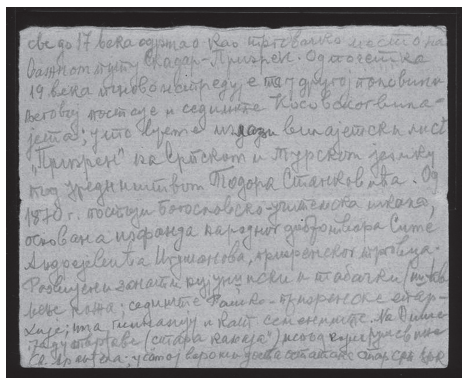 све до 17 века одржао као трговачко место на
важном путу Скадар-Призрен. Од почетка
19 века поново напредује а у другој половини
његовој постаје и седиште Косовског вила-
јета; у то време излази вилајетски лист
„Призрен" на српском и турском језику
под уредништвом Тодора Станковића. Од
1870 г. постоји богословско-учитељска школа,
основана из фонда народног добротвора Симе
Андрејевића Игуманова, призренског трговца.
Развијени занати кујунџиски и табачки
коже; седиште Рашко-призренске епар-
хије; има гимназију и
(стара
доста остатака стар. срп. црк